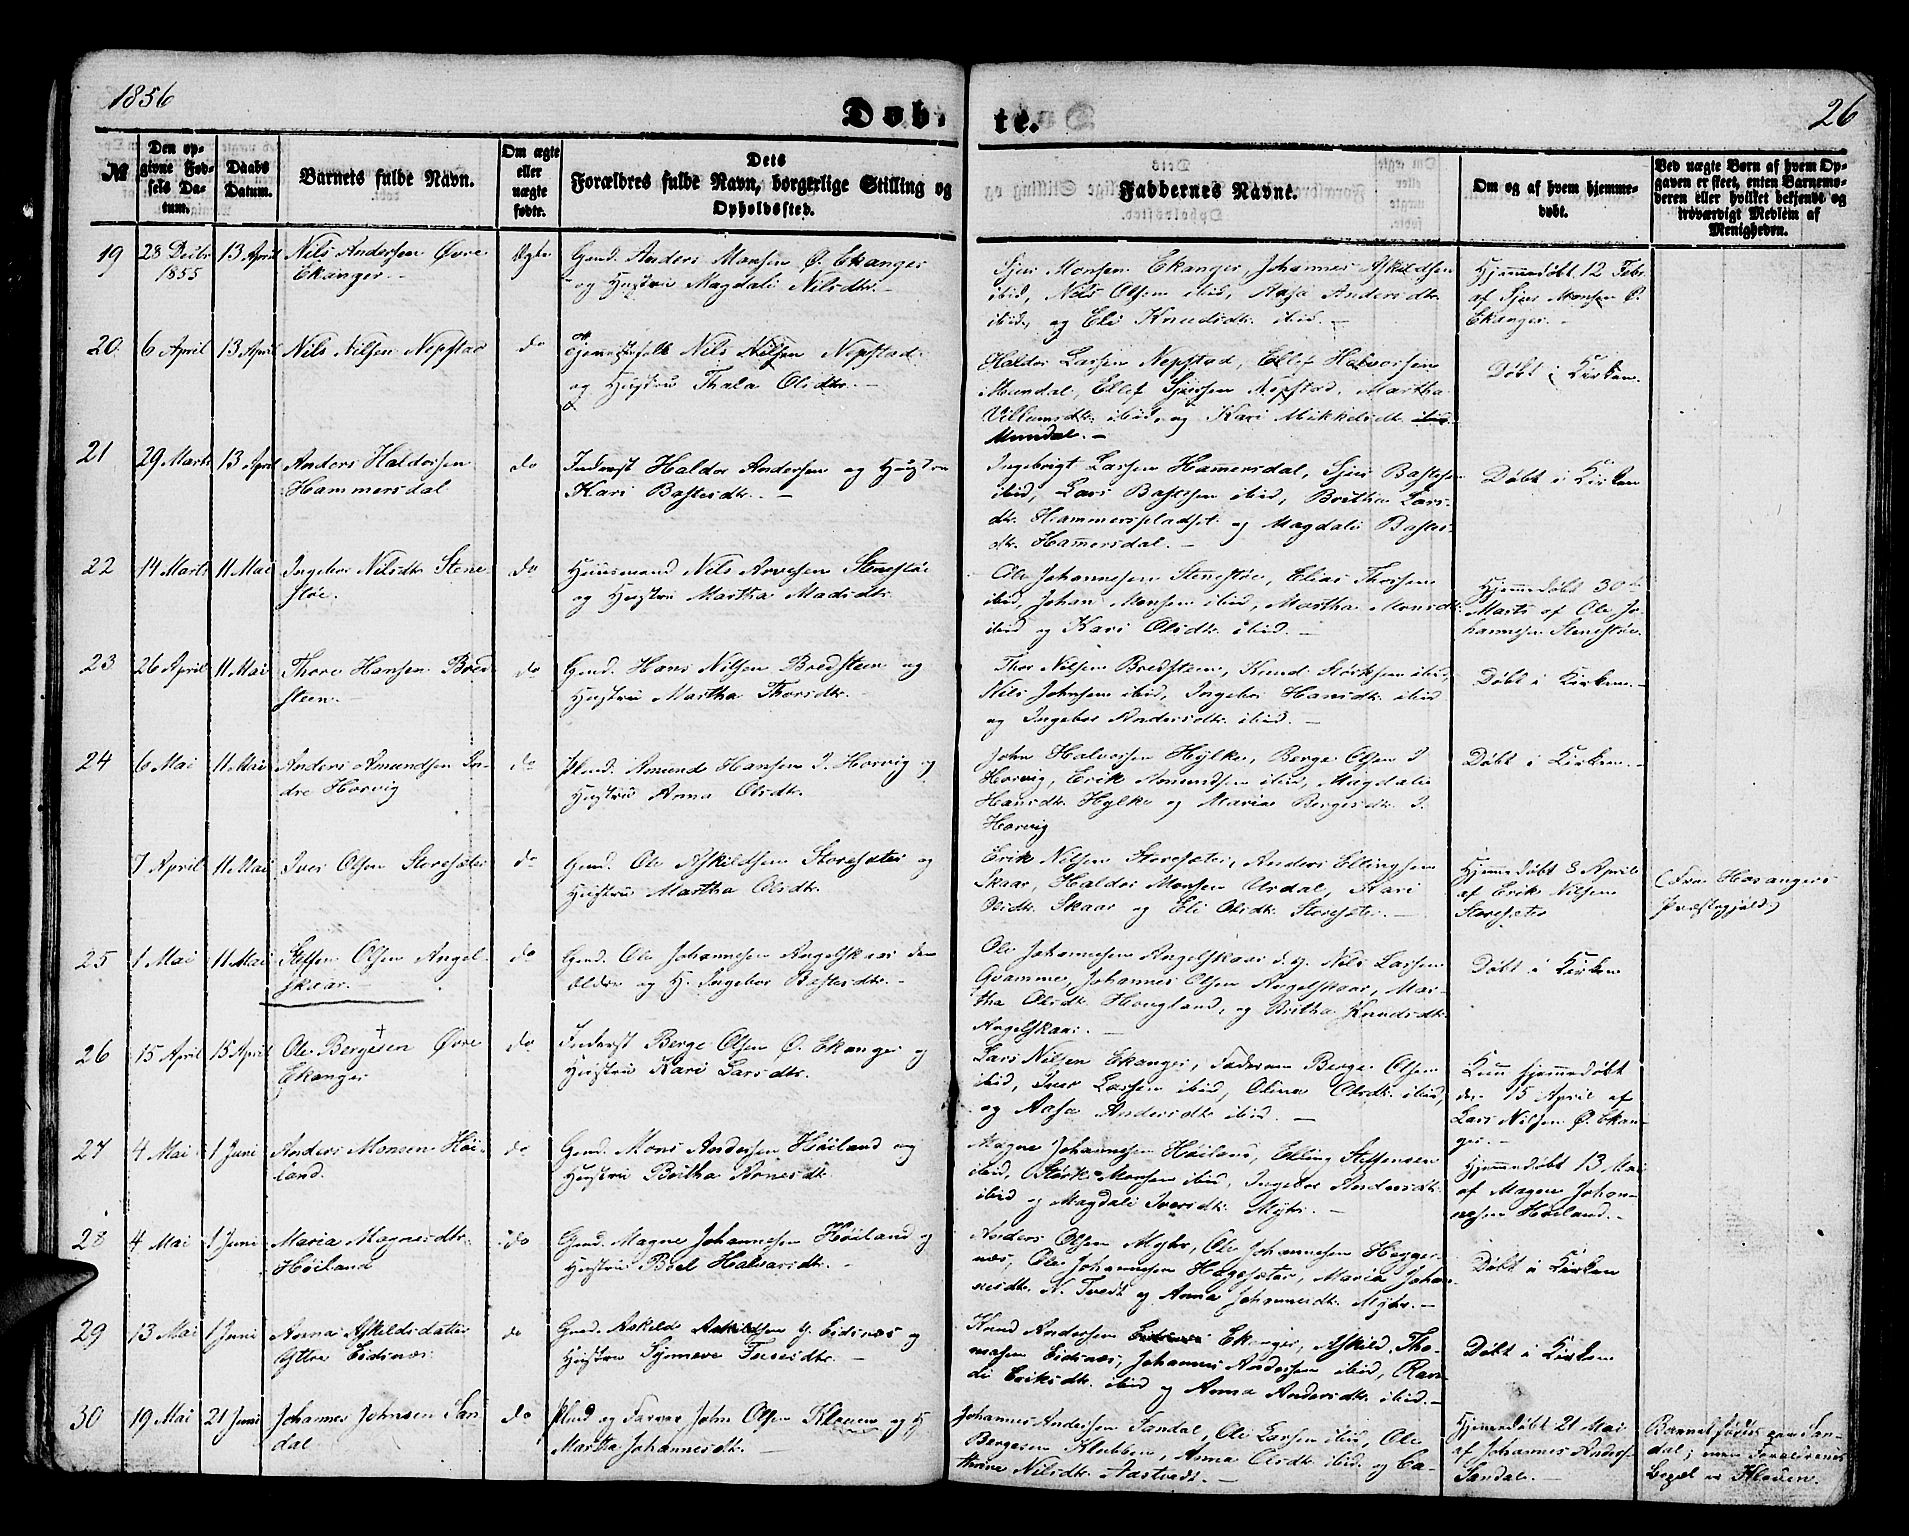 1856
Døb-
te.
26
№
Den op-
givne Fød-
sels Da-
tum.
Daabs
Datum.
Barnets fulde Navn.
Om ægte
eller
uægte
fødte.
Dets
Forældres fulde Navn, borgerlige Stilling og
Opholdssted.
Faddernes Navne.
Om og af hvem hjemme-
døbt.
Ved uægte Børn af hvem Op-
gaven er skeet, enten Barnemo-
deren eller hvilket bekjendt og
troværdigt Medlem af
Menigheden.
19
28 Decbr
1855
13 April
Nils Andersen Øvre
Ekanger
Ægte
Gmd. Anders Monsen Ø. Ekanger
og Hustru Magdali Nilsdtr.
Sjur Monsen Ekanger, Johannes Askildsen
ibid, Nils Olsen ibid, Aasa Andersdtr.
ibid, og Eli Knudsdtr. ibid.
Hjemmedøbt 12 Febr.
af Sjur Monsen Ø.
Ekanger.
20.
6 April
13 April
Nils Nilsen Nepstad
do
Tjenestefolk Nils Nilsen Nepstad
og Hustru Thala Olsdtr.
Haldor Larsen Nepstad, Ellef Halvorsen
Mundal, Ellef Sjursen Nepstad, Martha
Villumsdtr. ibid, og Kari Mikkelsdtr.
Mundal.
Døbt i Kirken.
21
29 Marts
13 April
Anders Haldorsen
Hammersdal
do
Inderst Haldor Andersen og Hustru
Kari Bastesdtr.
Ingebrigt Larsen Hamersdal, Sjur Bastesen
ibid, Lars Bastesen ibid, Britha Lars-
dtr. Hammerspladset og Magdali Bastes-
dtr. Hamersdal.
Døbt i Kirken
22
14 Marts
11 Mai
Ingebor Nilsdtr. Stene-
støe.
do
Huusmand Nils Arvesen Stenestøe
og Hustru Martha Madsdtr.
Ole Johannesen Stenestøe, Elias Thorsen
ibid, Johan Monsen ibid, Martha Monsdtr.
ibid og Kari Olsdtr. ibid.
Hjemmedøbt 30te
Marts af Ole Jo-
hannesen Stenestøe
23
26 April
11 Mai
Thore Hansen Bred-
steen.
do
Gmd. Hans Nilsen Bredsteen og
Hustru Martha Thorsdtr.
Thor Nilsen Bredsteen, Knud Størksen ibid,
Nils Johnsen ibid, Ingebor Hansdtr. ibid
og Ingebor Andersdtr. ibid.
Døbt i Kirken.
24
6 Mai
11 Mai
Anders Amundsen In-
dre Horvig
do
Plmd. Amund Hansen I. Horvig og
Hustru Anna Olsdtr.
John Halvorsen Hylke, Berge Olsen I
Horvig, Erik Amundsen ibid, Magdali
Hansdtr. Hylke og Maria Bergesdtr. I.
Horvig
Døbt i Kirken.
7 April
11 Mai
Iver Olsen Storesæter
do
Gmd. Ole Askildsen Storesæter og
Hustru Martha Olsdtr.
Erik Nilsen Storesæter, Anders Ellingsen
Skaar, Haldor Monsen Urdal, Kari
Skaar og Eli Olsdtr. Storesæter.
Hjemmedøbt 8 April
af Erik Nilsen
Storesæter
(Fra Hosangers
Præstegjeld.)
25
1 Mai
11 Mai
Steffen Olsen Angel-
skaar.
do
Gmd. Ole Johannesen Angelskaar den
ældre og H. Ingebor Bastesdtr.
Ole Johannesen Angelskaar d. y. Nils Larsen
Qvamme, Johannes Olsen Angelskaar, Mar-
tha Olsdtr. Hougland, og Britha Knudsdtr.
Angelskaar.
Døbt i Kirken
26
15 April
15 April
Ole Bergesen Øvre
Ekanger
do
Inderst Berge Olsen Ø. Ekanger og
Hustru Kari Larsdtr.
Lars Nilsen Ekanger, Faderen Berge Olsen
ibid, Iver Larsen ibid, Olina Olsdtr. ibid,
og Aasa Andersdtr. ibid.
Kun hjemmedøbt
den 15 April af
Lars Nilsen Ø. Ekan-
ger.
27
4 Mai
1 Juni
Anders Monsen Høi-
land.
do
Gmd. Mons Andersen Høiland og
Hustru Britha Arnesdtr.
Magne Johannesen Høiland, Elling Steffensen
ibid, Størk Monsen ibid, Ingebor Andersdtr.
ibid og Magdali Iversdtr. Myhr.
Hjemmedøbt 13 Mai
af Magne Johan-
nesen Høiland.
28
4 Mai
1 Juni
Maria Magnesdtr.
Høiland
do
Gmd. Magne Johannesen Høiland og
Hustru Boel Halvarsdtr.
Anders Olsen Myhr, Ole Johannesen Hegger-
næs, Ole Johannesen Hagesæter, Maria Johan-
nesdtr. N. Tvedt og Anna Johannesdtr. Myhr.
Døbt i Kirken
29
13 Mai
1 Juni
Anna Askildsdatter
Yttre Eidsnæs
do
Gmd. Askild Askildsen y. Eidsnæs og
Hustru Synneve Tuesdtr.
Knud Andersen Ekanger, Askild Tho-
masen Eidsnæs, Johannes Andersen ibid, Ran-
di Eriksdtr. ibid og Anna Andersdtr. ibid.
Døbt i Kirken
30
19 Mai
21 Juni
Johannes Johnsen San-
dal
do
Plmd og Farver John Olsen Klauen og H.
Martha Johannesdtr.
Johannes Andersen Sandal, Ole Larsen ibid, Ole
Bergesen Klubben, Anna Olsdtr. ibid og Ca-
thrine Nilsdtr. Aastvedt.
Hjemmedøbt 21 Mai
af Johannes Anders.
Sandal.
Barnet fødtes paa San-
dal; men Forældrenes
Bopæl er Klauen.